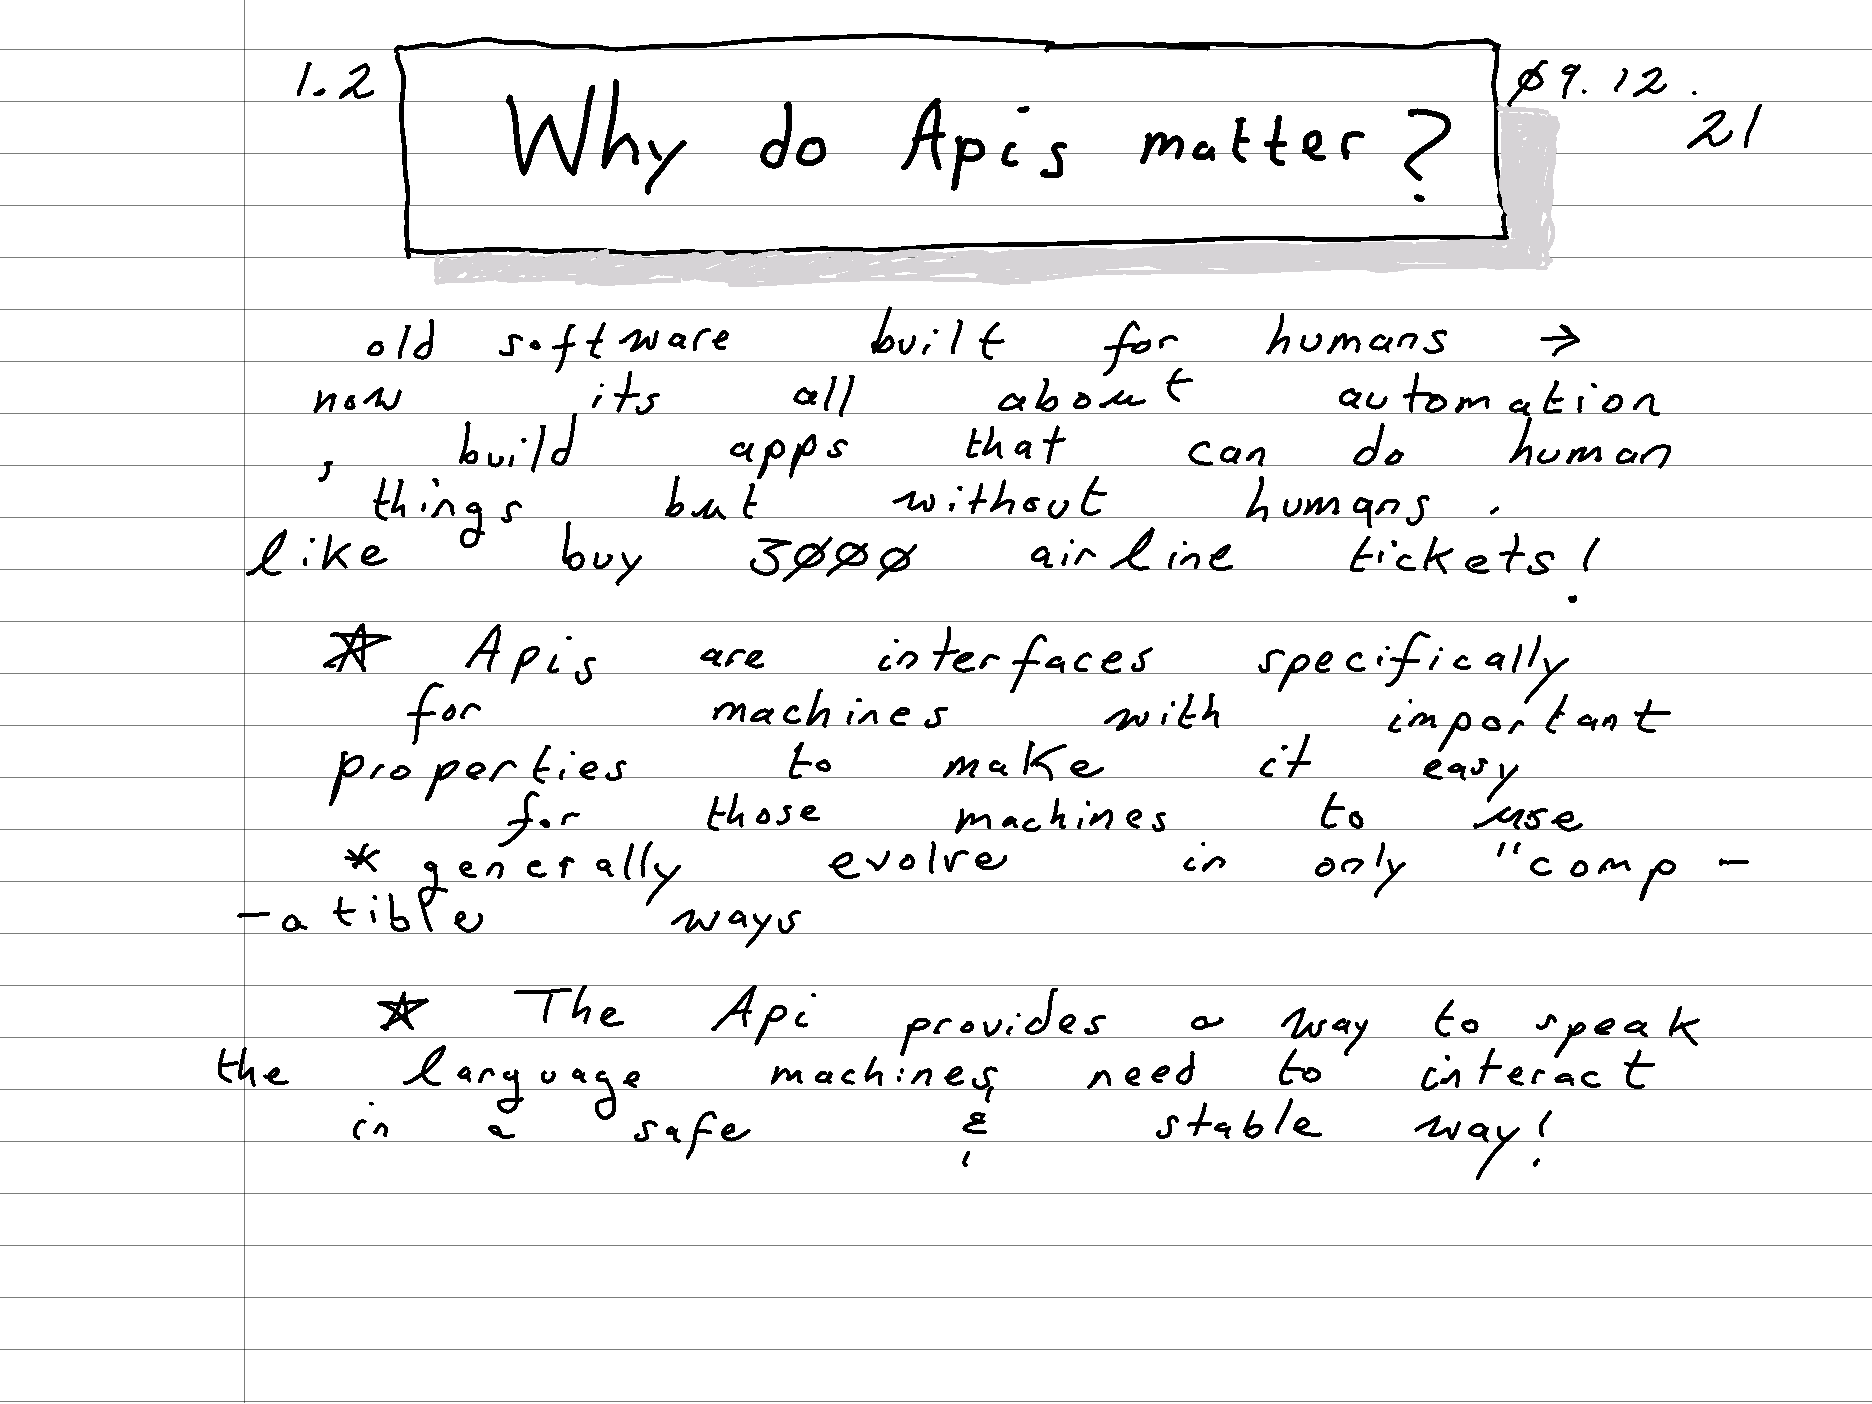 1.2
Why do Apis matter?
ø9.12.
21
old software built for humans →
now its all about automation
, build apps that can do human
things but without humans.
like buy 3øøø airline tickets!
☆ Apis are interfaces specifically
for machines with important
properties to make it easy
for those machines to use
* generally evolve in only "comp -
-atible ways
☆ The Api provides a way to speak
the language machines need to interact
in a safe & stable way!